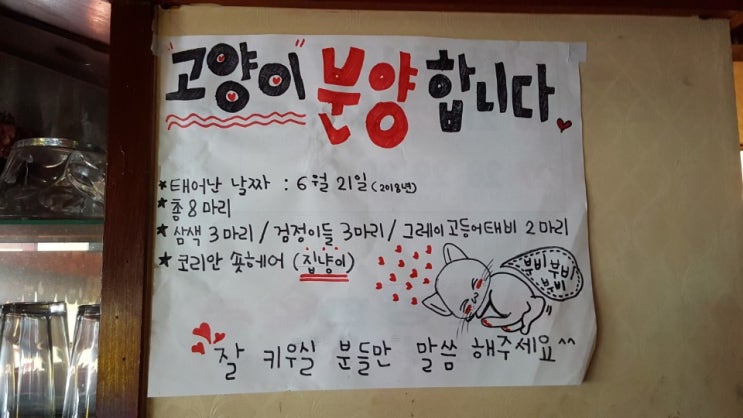 "고양이" 분양합니다.
★ 태어난 날짜 : 6월 21일 (2018년)
★ 총 8마리
★ 삼색 3마리 / 검정이들 3마리 / 그레이고등어태비 2마리
★ 코리안 숏헤어 (집냥이)
부비부비
부비
잘 키우실 분들만 말씀 해주세요^^